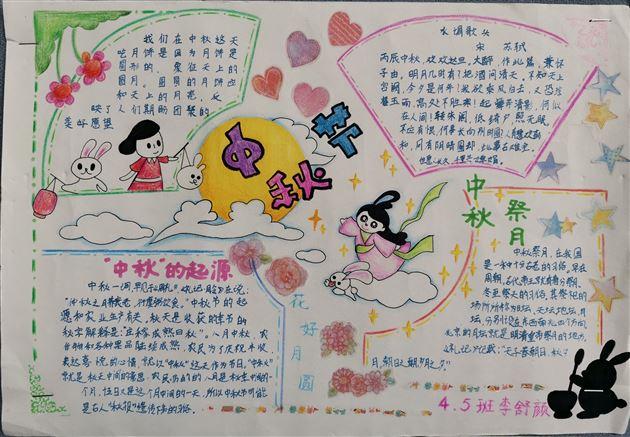 我们在中秋这天
吃月饼是因为月饼是
圆形的，象征天上的
圆月，圆圆的月饼也
和天上的月亮，反
映了人们期盼团聚的
美好愿望
水调歌头
宋 苏轼
丙辰中秋，欢饮达旦，大醉，作此篇，兼怀
子由，明月几时有？把酒问清天，不知天上
宫阙，今夕是何年？我欲乘风归去，又恐
高处不胜寒！起舞弄清影，何似
在人间！转朱阁，低绮户，照无眠，
不应有恨，何事长向别时圆？人有悲欢
月有阴晴圆缺，此事古难全，
但愿人长久，千里共婵娟。
中秋节
中秋 祭月
中秋祭月，在我国
是一种十分古老的习俗，早在
周朝，古代帝王就有春分祭
冬至祭天的习俗，其祭祀的
场所分别为日坛、天坛、地坛、月
坛，分别设在东西南北四个方向
北京的月坛就是明清皇帝祭月的地方。
《礼记》记载：“天子春朝日，秋夕
月，朝日之朝，夕月之夕”
“中秋”的起源
中秋一词，
中秋节的起
源和农业生产有关，秋天是收获的季节
秋字解释是：“庄稼成熟曰秋”。八月中秋，农
作物和各种果品陆续成熟，农民为了庆祝丰收，
表达喜悦的心情，就以“中秋”这天作为节日，“中秋”
就是秋天中间的意思，农历的八月是秋季中间的一
个月，十五日又是这个月中间的一天，所以中秋节可能
是古人“秋报”遗传下来的习俗。
花好月圆
4.5班李舒颜